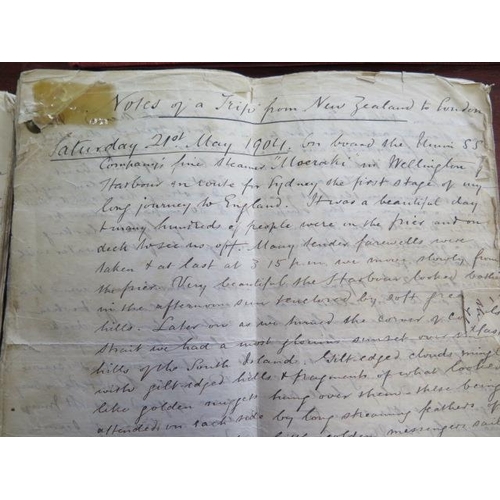 Notes of a Trip from New Zealand to London
Saturday 21st May 1904. On board the Union SS
Company's fine steamer "Moeraki" in Wellington
Harbour en route for Sydney the first stage of my
long journey to England. It was a beautiful day
& many hundreds of people were on the pier and on
deck to see us off. Many tender farewells were
taken & at last at 3 15 p.m. we move slowly from
the pier. Very beautiful the Harbour looked
in the afternoon sun enclosed by soft
hills. Later on as we turned the corner of
Strait we had a most glorious sunset over
hills of the South Island. Gilt edged clouds
with gilt edged hills & fragments of what looked
like golden nuggets hung over them these being
attended on each side by long streaming feathers of
golden messengers